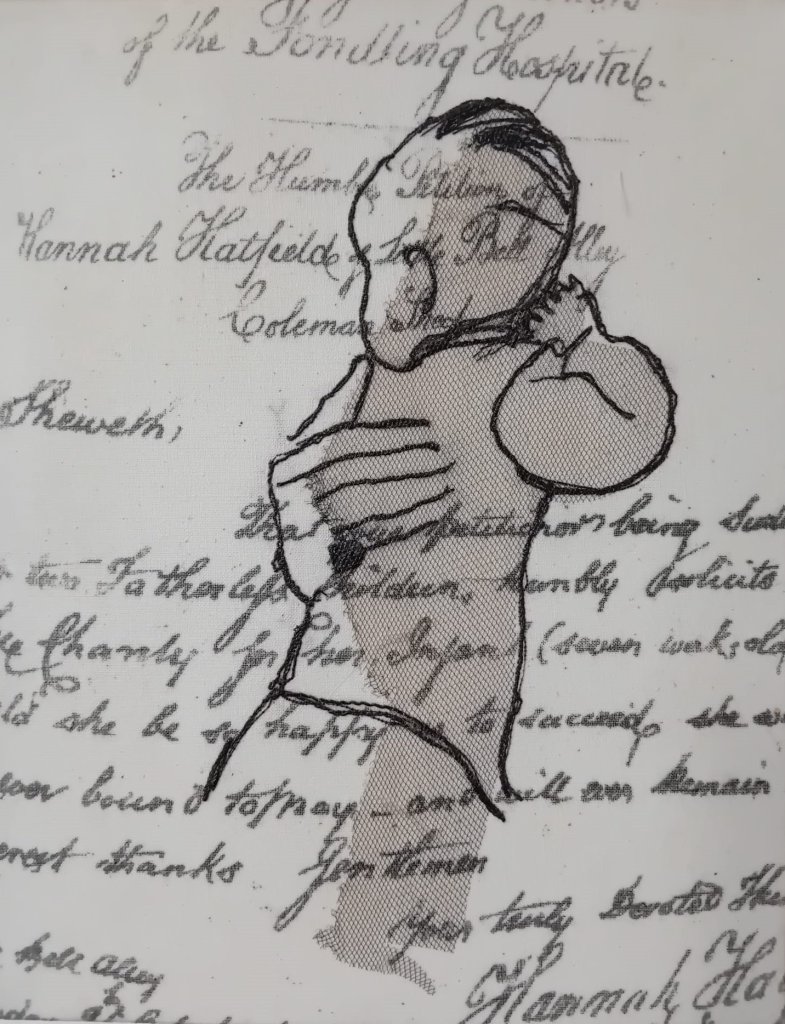 of the Fondling Hospital.
The Humble Petition of
Hannah Hatfield of Bell Alley
Coleman
Sheweth,
That your petitioner being
two Fatherless Children, humbly solicits
Charity for her Infant (seven weeks old
she be so happy as to succeed, she
ever bound to pray — and will ever remain
thanks Gentlemen
Your truly Devoted
Bell Alley
Hannah